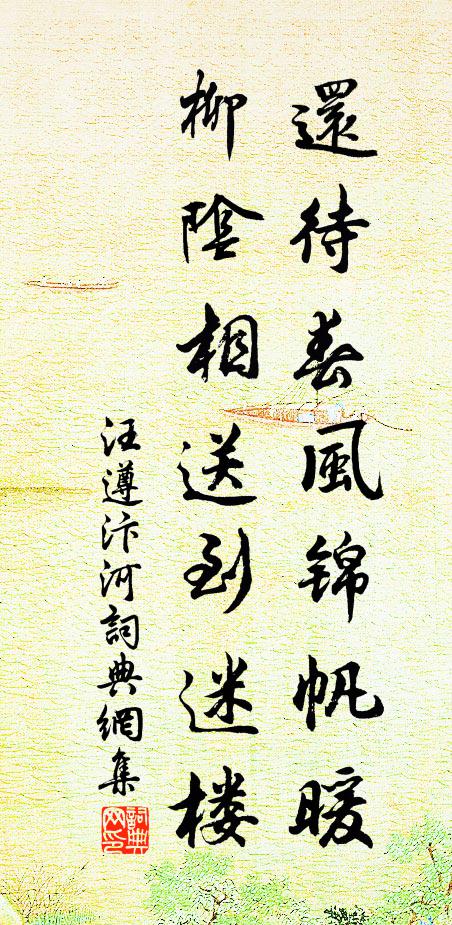 還待春風锦帆暖
柳陰相送到迷楼
汪遵汴河詞典網集
詞典网印